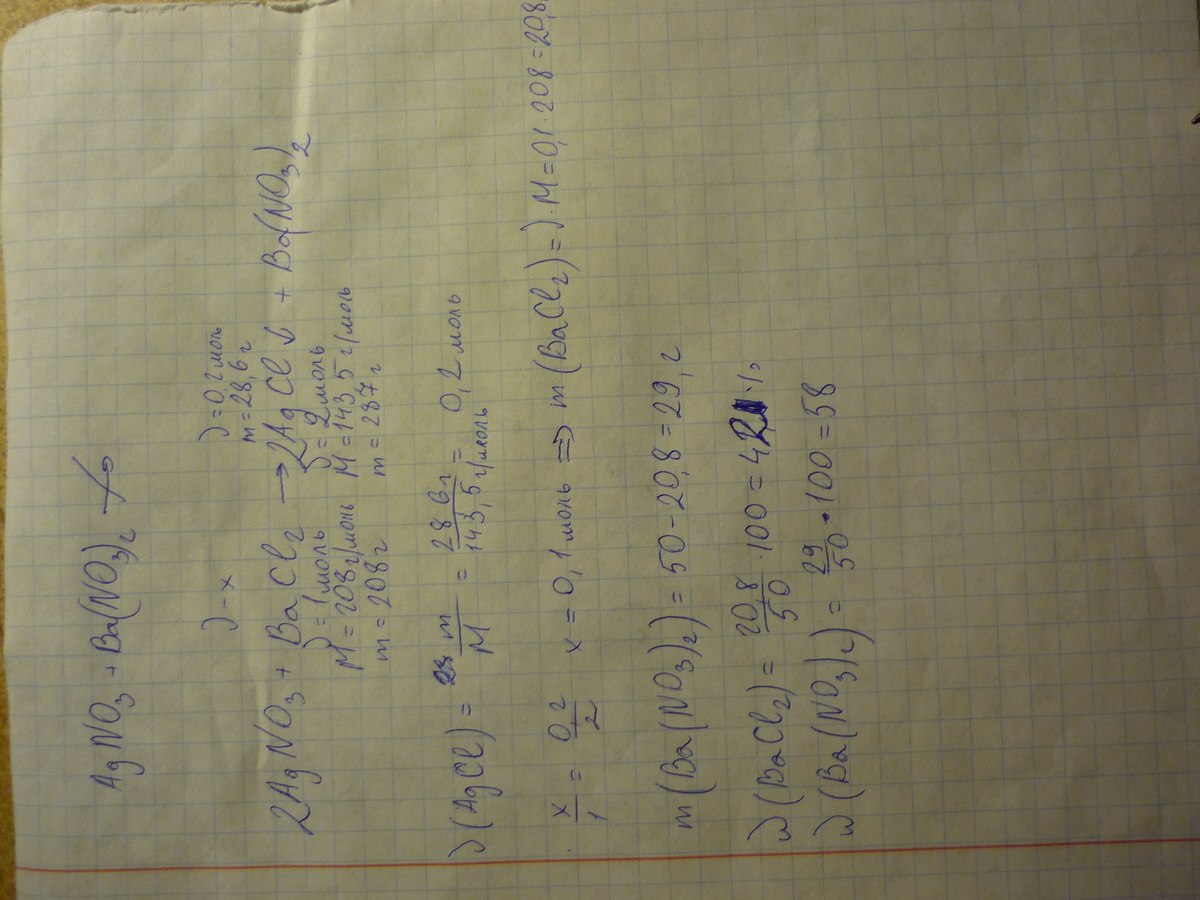 AgNO3 + Ba(NO3)2 ↛
ν - x
ν = 0,2 моль
m = 28,6 г
2AgNO3 + BaCl2 → 2AgCl↓ + Ba(NO3)2
ν = 1 моль ν = 2 моль
M = 208 г/моль M = 143,5 г/моль
m = 208 г m = 287 г
ν(AgCl) = m/M = 28,6 г/143,5 г/моль = 0,2 моль
x/1 = 0,2/2 x = 0,1 моль ⇒ m(BaCl2) = ν·M = 0,1·208 = 20,8
m(Ba(NO3)2) = 50 - 20,8 = 29, г
ω(BaCl2) = 20,8/50 · 100 = 42 %
ω(Ba(NO3)2) = 29/50 · 100 = 58